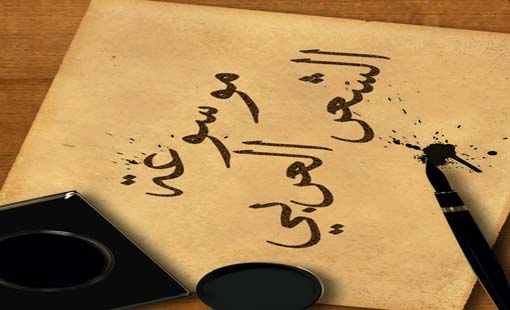 موسوعة
الشعر
العربي